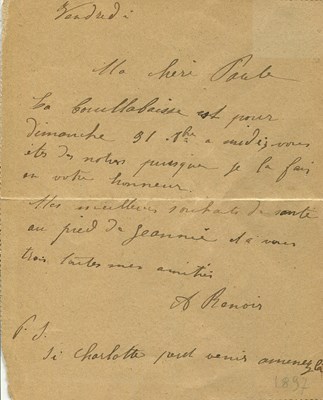 Vendredi
Ma chère Paule
La Bouillabaisse est pour
dimanche 31 à midi, vous
êtes des notres puisque je la fais
en votre honneur.
Mes meilleurs souhaits de santé
au pied de Jeannie et à vous
trois toutes mes amitiés
A Renoir
P. S.
Si Charlotte peut venir amenez la
1897